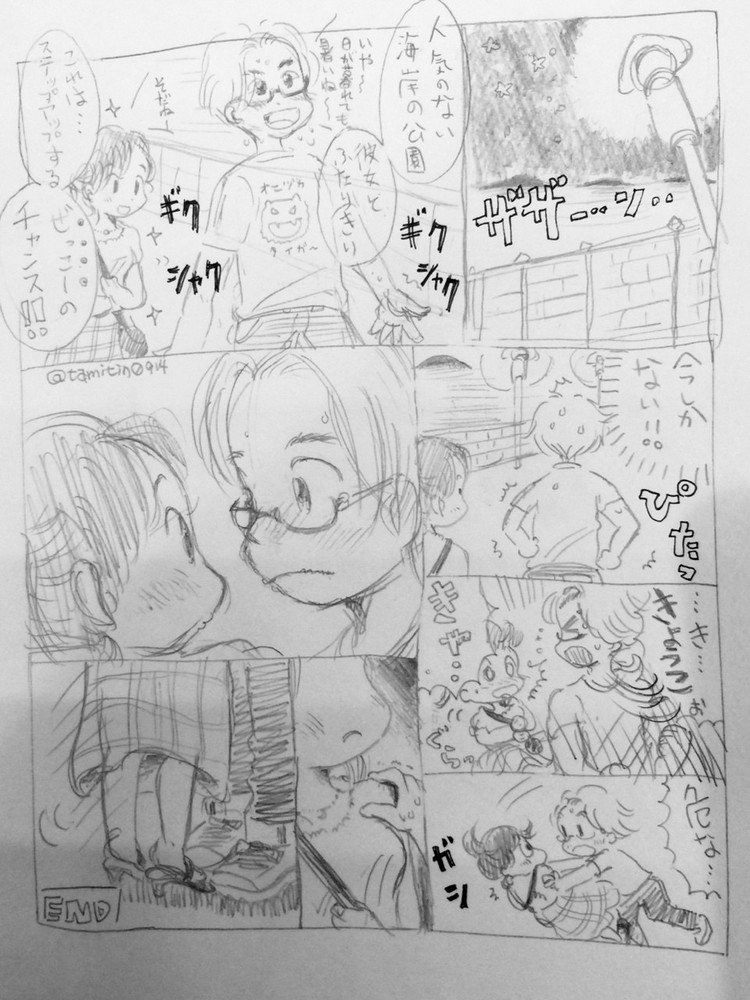 ザザーン…
人気のない
海岸の公園
彼女と
ふたりきり
いや〜
日が暮れても
暑いね〜
そだね〜
オニヅカ
タイガ〜
ギク
シャク
ギク
シャク
これは…
ステップアップする
ぜっこーの
チャンス!!
今しか
ない!!
ぴたっ
…き…
きょうこぉ
きゃ…
ガシ
@tamitin0914
END